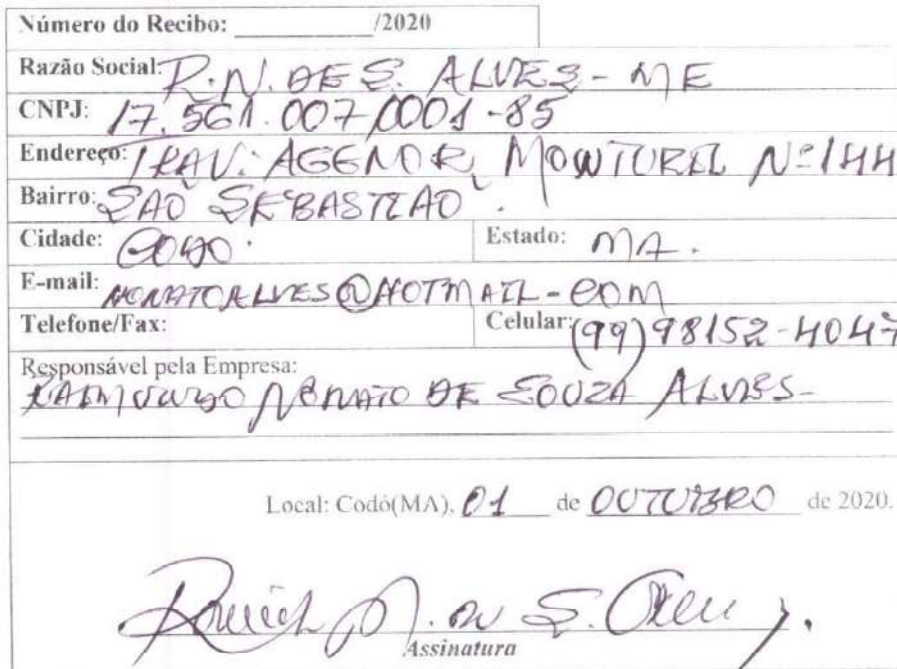 Número do Recibo: ________/2020
Razão Social: R.N. DE S. ALVES - ME
CNPJ: 17.561.007/0001-85
Endereço: TRAV: AGENOR MONTUREL Nº 144
Bairro: SÃO SEBASTIÃO.
Cidade: CODO. Estado: MA.
E-mail: NONATOALVES@HOTMAIL-COM
Telefone/Fax: Celular: (99) 98152-4047
Responsável pela Empresa:
RAIMUNDO NONATO DE SOUZA ALVES-
Local: Codó(MA), 01 de OUTUBRO de 2020.
Assinatura